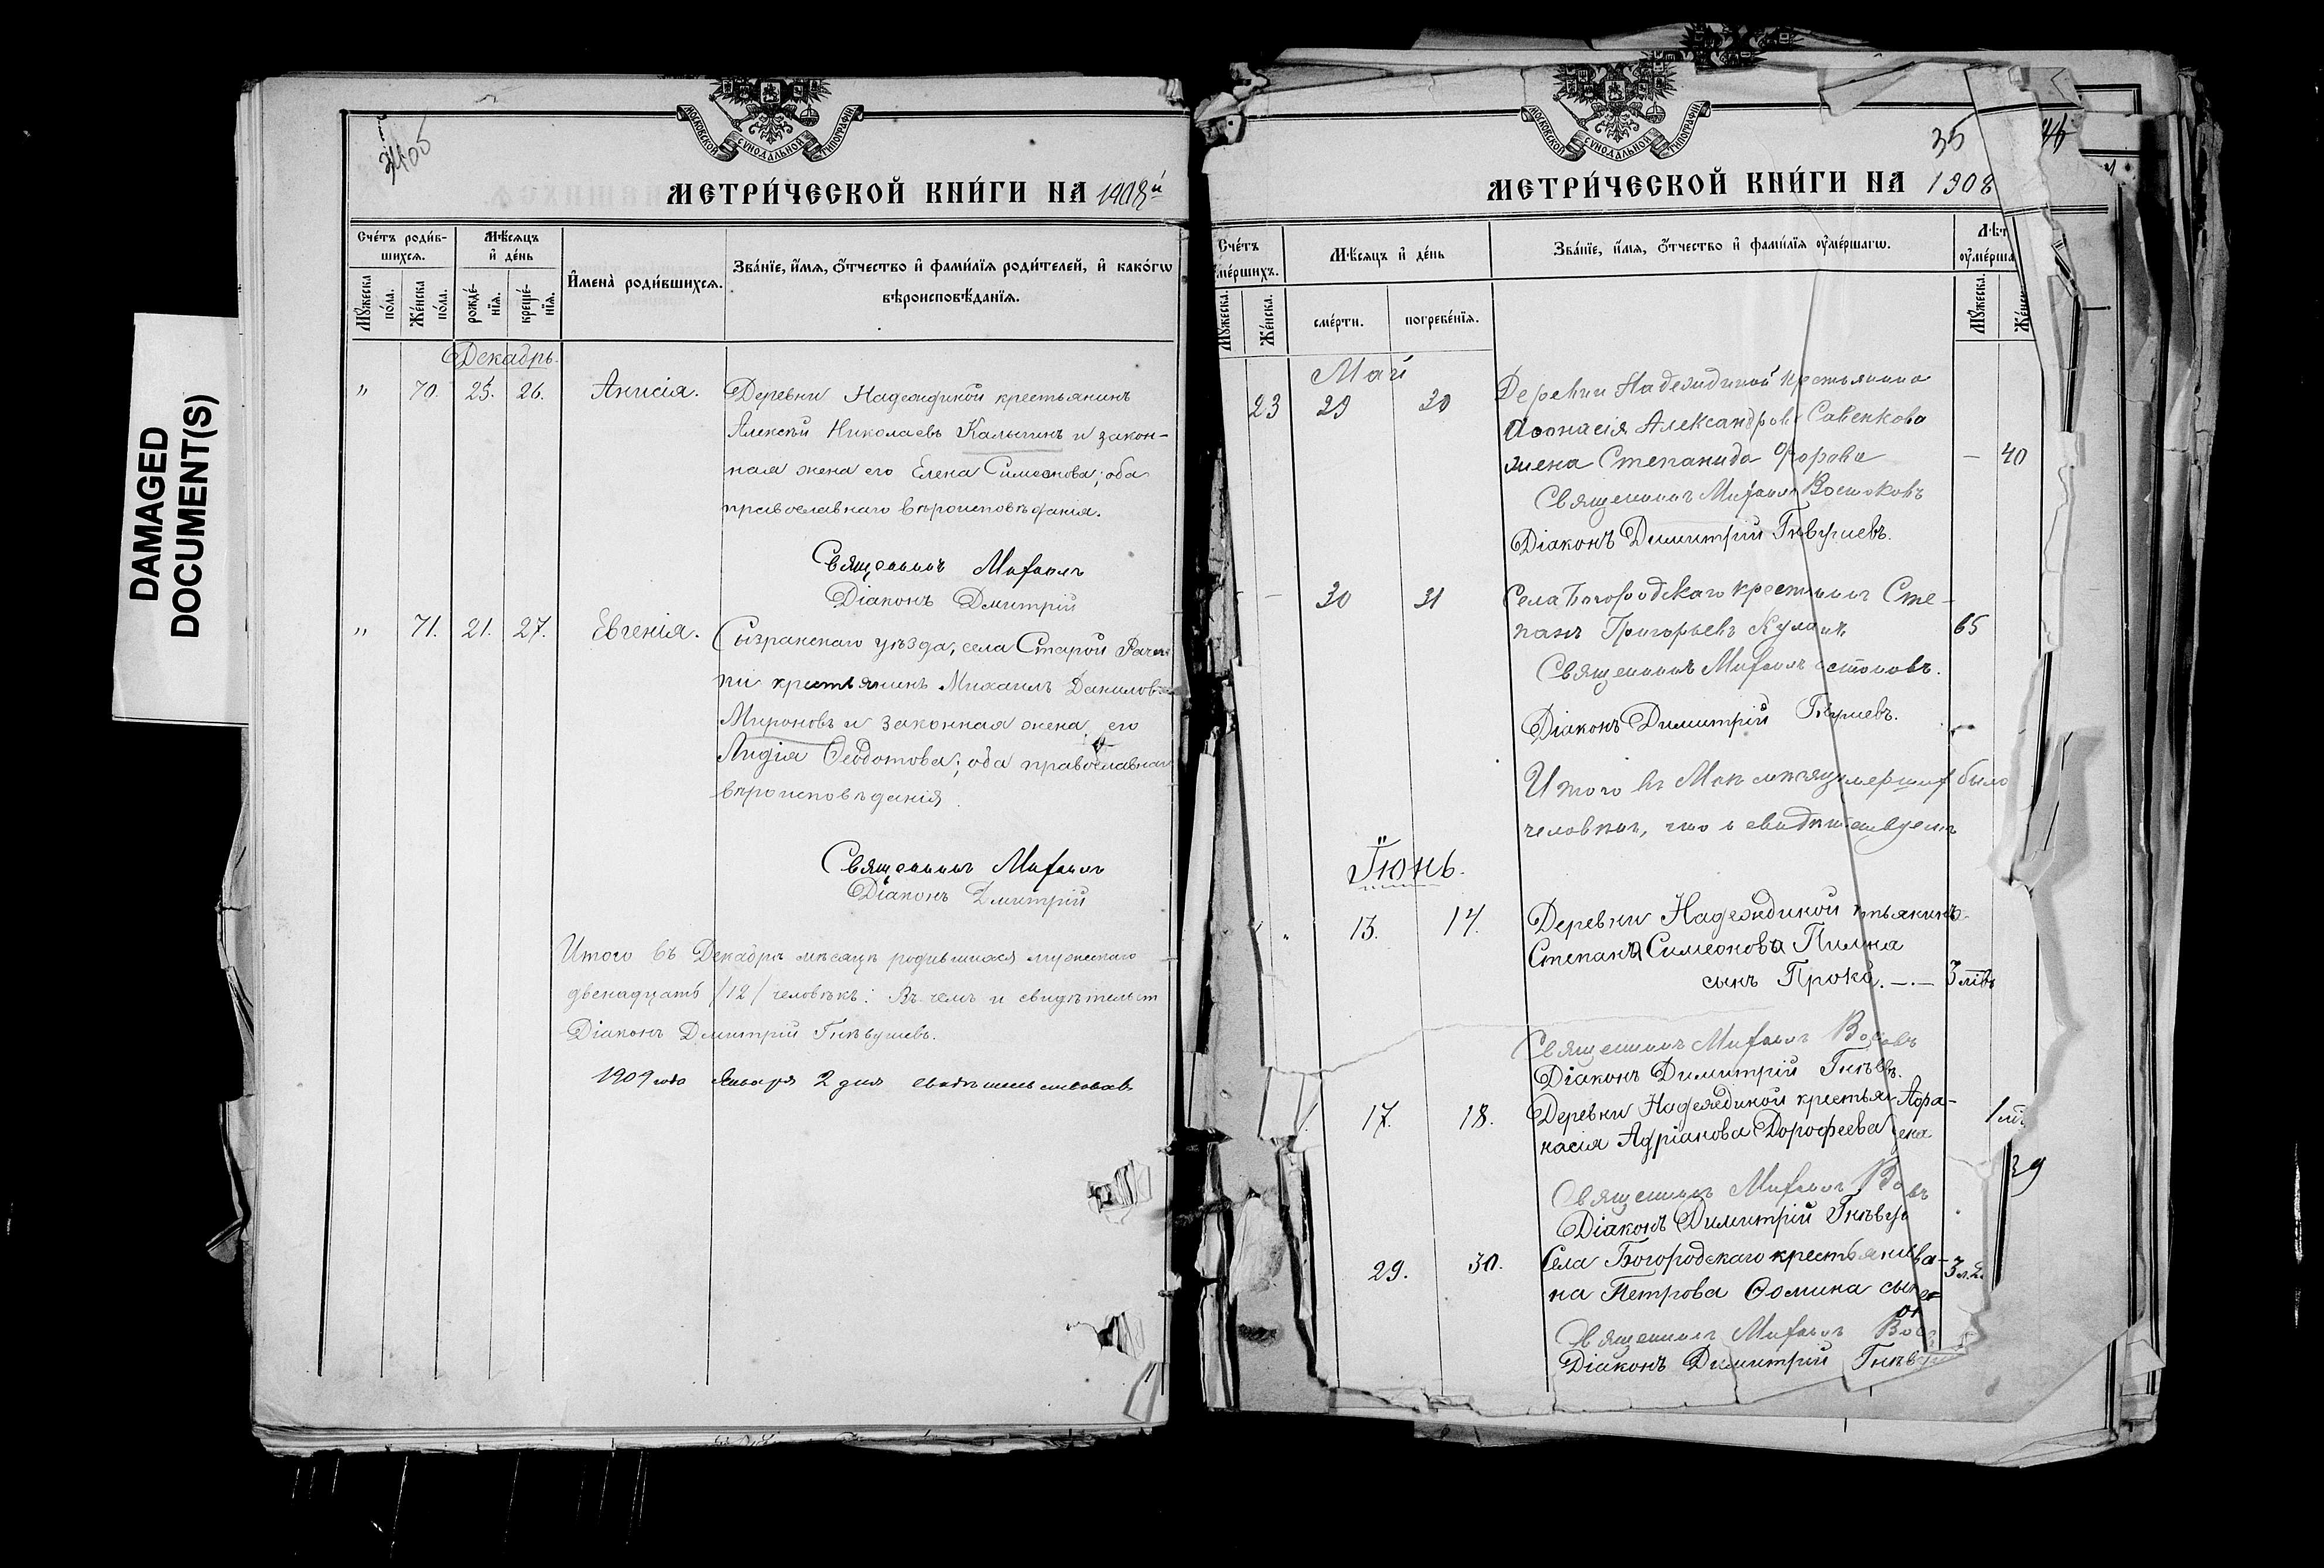 DAMAGED
DOCUMENT(S)
МОСКОВСКОЙ СѴНОДАЛЬНОЙ ТИПОГРАФІИ
МЕТРИ́ЧЕСКОЙ КНИ́ГИ НА 1908й
Сче́тъ роди́в-
шихся.
Мѣ́сяцъ
и҆ де́нь
Мꙋ́жеска по́ла.
Же́нска по́ла.
рожде́-
нїя.
креще́-
нїя.
И҆мена̀ роди́вшихся.
Зва́нїе, и҆́мя, ѻ҆́тчество и҆ фами́лїя роди́телей, и҆ како́гѡ
вѣроисповѣ́данїя.
Декабрь
" 70. 25. 26. Анисія. Деревни Надеждиной крестьянинъ
Алексѣй Николаевъ Калыгинъ и закон-
ная жена его Елена Симеонова; оба
православнаго вѣроисповѣданія.
Священникъ Михаилъ
Діаконъ Дмитрій
" 71. 21. 27. Евгенія. Сызранскаго уѣзда, села Старой Рачей-
ки крестьянинъ Михаилъ Даниловъ
Мироновъ и законная жена его
Лидія Ѳеодотова; оба православнаго
вѣроисповѣданія.
Священникъ Михаилъ
Діаконъ Дмитрій
Итого въ Декабрѣ мѣсяцѣ родившихся мужескаго
двенадцать /12/ человѣкъ: Въ чемъ и свидѣтельст
Діаконъ Дмитрій Гнѣвушевъ.
1909 года Января 2 дня свидѣтельствовав
МОСКОВСКОЙ СѴНОДАЛЬНОЙ ТИПОГРАФІИ
35
МЕТРИ́ЧЕСКОЙ КНИ́ГИ НА 1908
Сче́тъ
ме́ршихъ.
Мѣ́сяцъ и҆ де́нь
Зва́нїе, и҆́мя, ѻ҆́тчество и҆ фами́лїя ᲂу҆ме́ршагѡ.
Лѣ́т
ᲂу҆ме́рша
Мꙋ́жеска.
Же́нска.
сме́рти.
погребе́нїя.
Мꙋ́жеска.
Же́нск
Май
23 29 30 Деревни Надеждиной крестьянина
Аѳонасія Александрова Савенкова
жена Степанида Ѳ — 40
Священникъ Михаилъ Востоковъ
Діаконъ Димитрій Гнѣвушевъ.
— 30 31 Села Богородскаго крестьянинъ Сте-
панъ Григорьевъ 65
Священникъ Михаилъ стоковъ.
Діаконъ Димитрій Гнѣушевъ.
Итого въ Маѣ мѣсяцѣ умершихъ было
человѣкъ, что и
Іюнь.
13. 14. Деревни Надеждиной тьянинъ
Степана Симеонова Пилина
сынъ Проко. —.— 3 лѣтъ
Священникъ Михаилъ Вос овъ
Діаконъ Димитрій Гнѣвъ.
17. 18. Деревни Надеждиной крестья Аѳа-
насія Адріанова Дорофеева 1
39
Священникъ Михаилъ Во въ
Діаконъ Димитрій Гнѣвуш
29. 30. Села Богородскаго крестьянина Ива-
на Петрова Ѳомина сын 3
Священникъ Михаилъ Вос
Діаконъ Димитрій Гнѣву